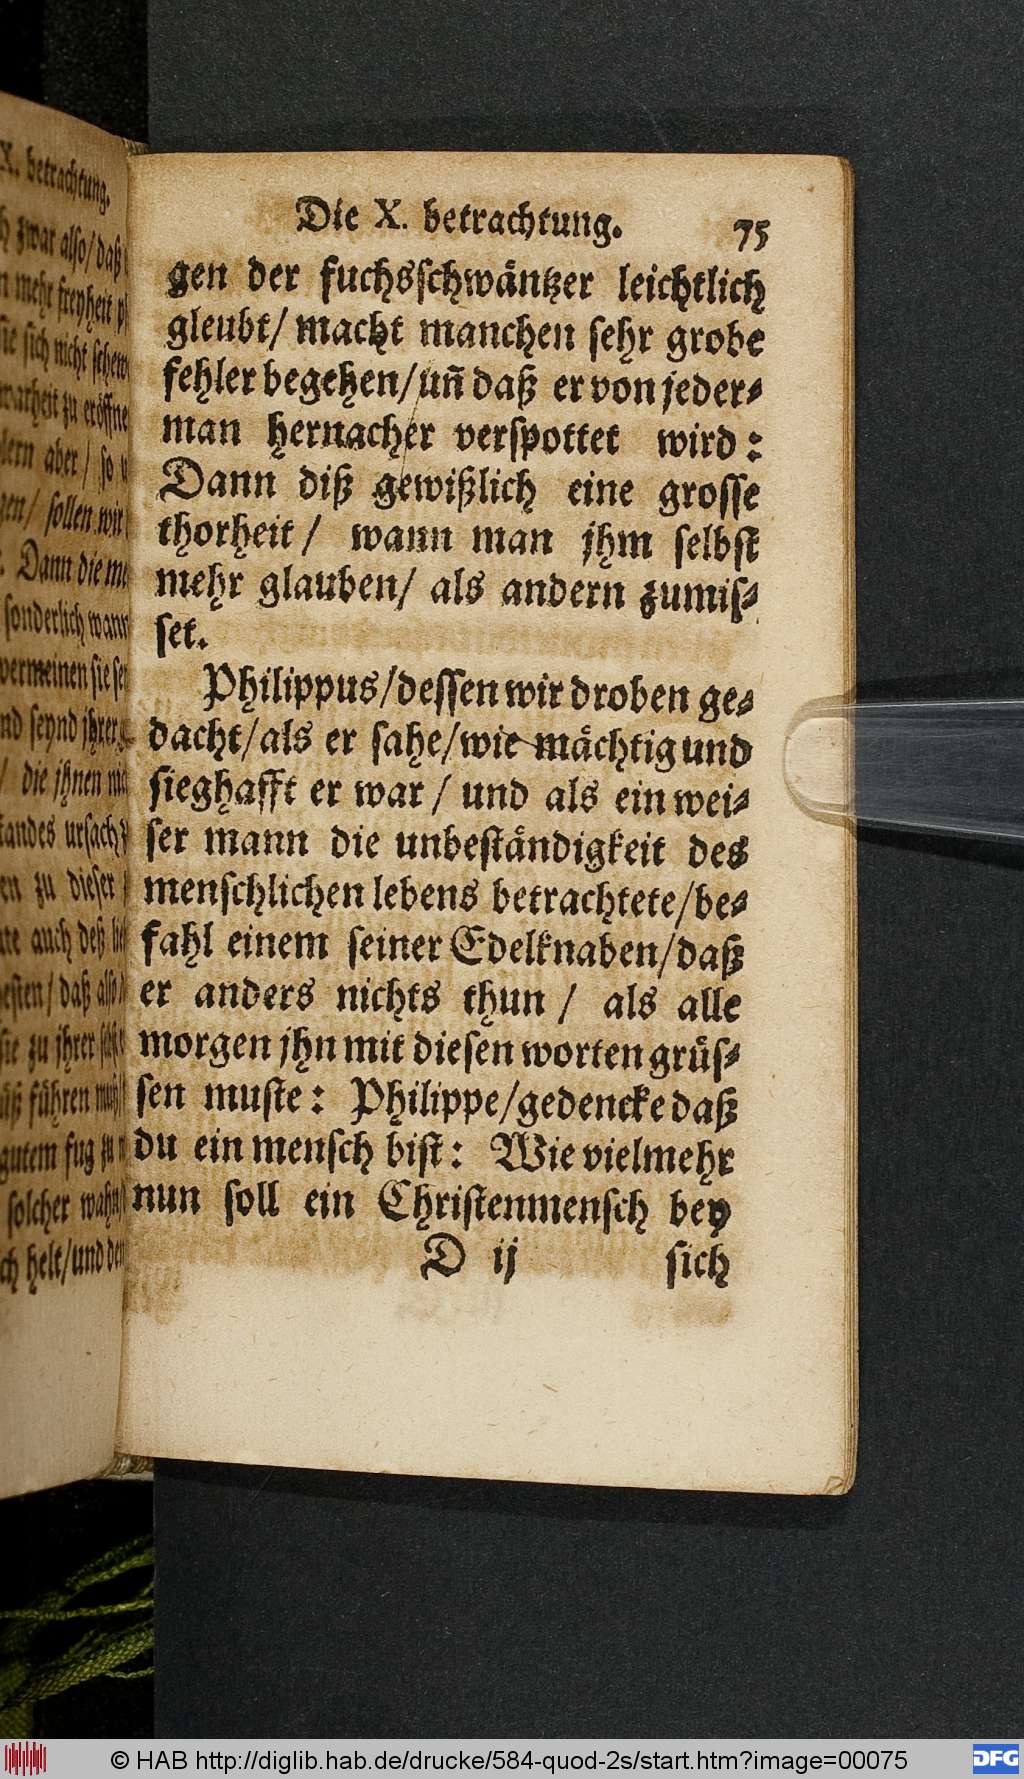 X. betrachtung.
zwar also/ daß
mehr freyheit
sie sich nicht
warheit zu
aber/ so
sollen wir
Dann die
sonderlich wann
vermeinen sie
seynd jhrer
/ die jhnen
ursach
zu dieser
auch deß
daß
sie zu jhrer
führen
gutem fug zu
solcher
helt/ und
Die X. betrachtung. 75
gen der fuchsſchwäntzer leichtlich
gleubt/ macht manchen ſehr grobe
fehler begehen/ uñ daß er von jeder⸗
man hernacher verſpottet wird:
Dann diß gewißlich eine groſſe
thorheit/ wann man jhm ſelbſt
mehr glauben/ als andern zumiſ⸗
ſet.
Philippus/ deſſen wir droben ge⸗
dacht/ als er ſahe/ wie mächtig und
ſieghafft er war/ und als ein wei⸗
ſer mann die unbeſtändigkeit des
menſchlichen lebens betrachtete/ be⸗
fahl einem ſeiner Edelknaben/ daß
er anders nichts thun/ als alle
morgen jhn mit dieſen worten grüſ⸗
ſen muſte: Philippe/ gedencke daß
du ein menſch biſt: Wie vielmehr
nun ſoll ein Chriſtenmenſch bey
D ij ſich
© HAB http://diglib.hab.de/drucke/584-quod-2s/start.htm?image=00075
DFG